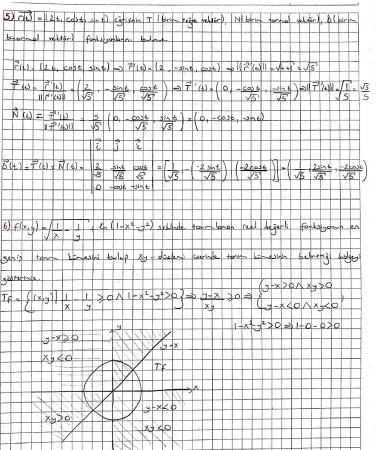 5) r(t) = (2t, cost, sint) eğrisinin T (birim teğet vektör), N (birim normal vektör), B (birim
binormal vektör) fonksiyonlarını bulunuz.
r(t) = (2t, cost, sint) ⇒ r'(t) = (2, -sint, cost) ⇒ ||r'(t)|| = √4+1 = √5
T(t) = r'(t) / ||r'(t)|| = (2/√5, -sint/√5, cost/√5) ⇒ T'(t) = (0, -cost/√5, -sint/√5) ⇒ ||T'(t)|| = √1/5 = √5/5
N(t) = T'(t) / ||T'(t)|| = 5/√5 (0, -cost/√5, -sint/√5) = (0, -cost, -sint)
i j k
B(t) = T(t) x N(t) = | 2/√5 -sint/√5 cost/√5 | = [1/√5 - (-2sint/√5) + (-2cost/√5)] = (1/√5, 2sint/√5, -2cost/√5)
0 -cost -sint
6) f(x,y) = √1/x - 1/y + ln(1-x²-y²) şeklinde tanımlanan reel değerli fonksiyonun en
geniş tanım kümesini bulup xy-düzlemi üzerinde tanım kümesinin belirttiği bölgeyi
gösteriniz.
Tf = {(x,y) | 1/x - 1/y ≥ 0 ∧ 1-x²-y² > 0} ⇒ y-x/xy ≥ 0 ⇒ (y-x>0 ∧ xy>0)
(y-x<0 ∧ xy<0)
1-x²-y²>0 ⇒ 1-0-0>0
y
y-x≥0 y=x
xy<0 Tf
x
y-x<0
xy>0 xy<0